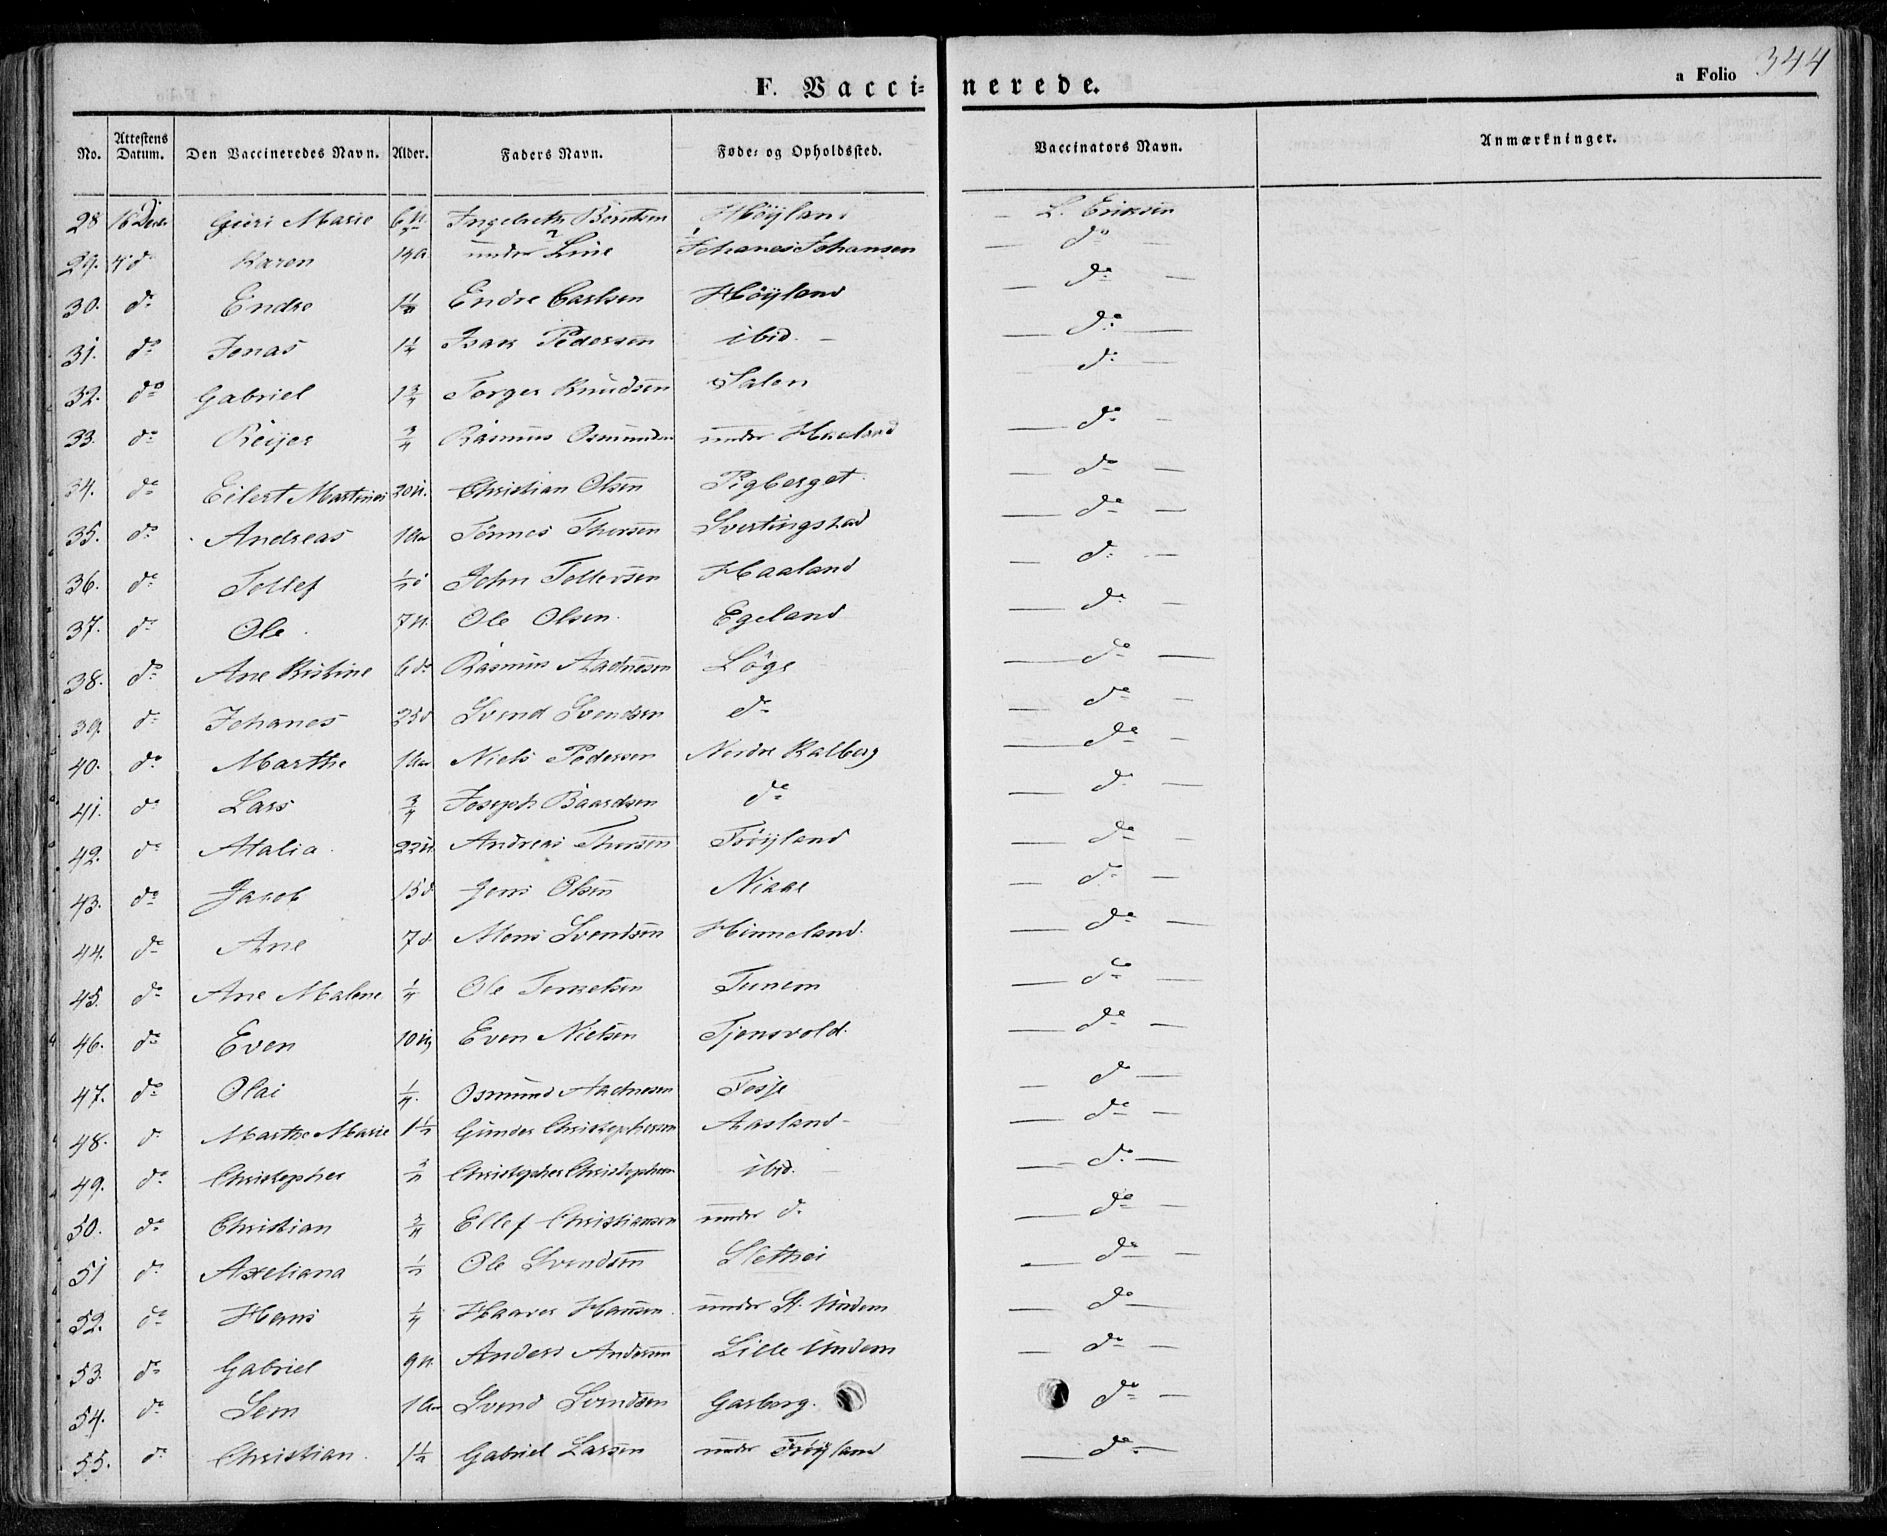 a Folio 344
F. Vaccinerede.
No. Attestens Datum. Den Vaccineredes Navn. Alder. Faders Navn. Føde- og Opholdssted. Vaccinators Navn. Anmærkninger.
28 Guri Marie Ingebreth Berntsen Höÿland L. Eriksen
29. do Karen under Line Johanes Johansen do
30. do Endre Endre Carlsen Höÿland do
31. do Jonas 1 1/4 Isak Pedersen ibid. do
32. do Gabriel 1 3/4 Torger Knudsen do
33. do Reijer 3/4 Rasmus Osmundsen under do
34. do Eilert Martines Christian Olsen Pigberget do
35. do Andreas Tönnes Thorsen Svertingstad do
36. do Tollef John Tollefsen Haaland do
37. do Ole Ole Olsen Egeland do
38. do Ane Kistine 6 do Rasmus Aadnesen Löge do
39. do Johanes 25 d Svend Svendsen do do
40. do Marthe Niels Pedersen Nordre Kalberg do
41. do Lars 3/4 Joseph Baardsen do do
42. do Malia Andreas Thorsen Fröÿland do
43. do Jacob 15 d Jens Olsen Niaae do
44. do Ane 7 d. Mons Svendsen Hinneland do
45. do Ane Malene 1/4 Ole Torkelsen Tunem do
46. do Even Even Nielsen Tjensvold do
47. do Olai 1/4 Osmund Aadnesen Fosse do
48. do Marthe Marie 1 1/2 Gunder Christophersen Aasland do
49. do Christopher Christopher Christophersen ibid. do
50. do Christian 3/4 Ellef Christiansen under do do
51 do Axeliana 1/2 Ole Svendsen Slethei do
52. do Hans 1/4 Haaver Hansen under St. Undem do
53. do Gabriel Anders Andersen Lille Undem do
54. do Sem Svend Svendsen Garborg. do
55. do Christian Gabriel Larsen under Fröÿland do